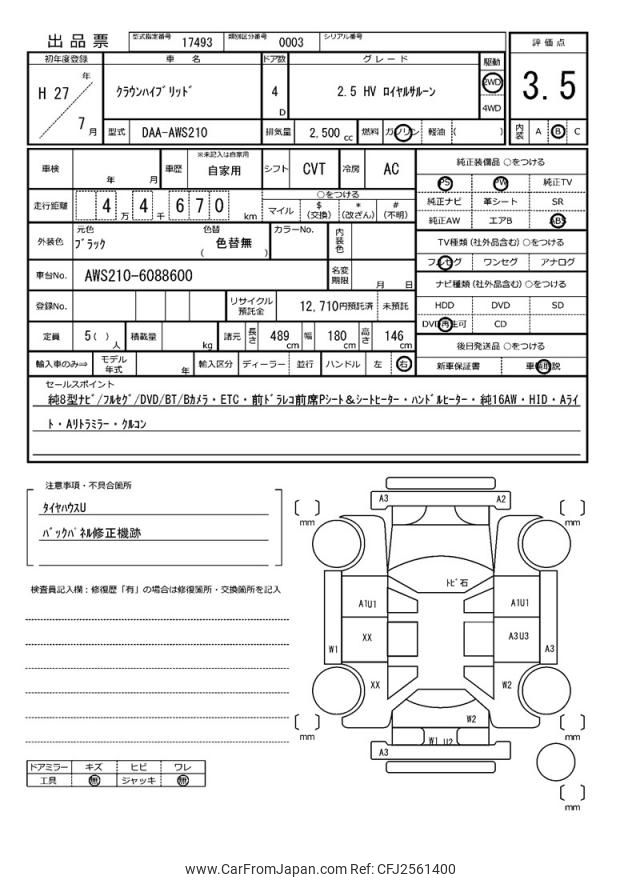 出品票 型式指定番号 17493 類別区分番号 0003 シリアル番号
初年度登録 車名 ドア数 グレード 駆動 評価点
H 27 年 クラウンハイブリッド 4 D 2.5 HV ロイヤルサルーン 2WD 4WD 3.5
7 月 型式 DAA-AWS210 排気量 2,500 cc 燃料 ガソリン 軽油 ( ) 内装 A B C
車検 年 月 車歴 ※未記入は自家用 自家用 シフト CVT 冷房 AC 純正装備品 ○をつける
PS PW 純正TV
走行距離 4 万 4 千 6 7 0 km ○をつける
マイル $ (交換) * (改ざん) # (不明)
純正ナビ 革シート SR
純正AW エアB ABS
外装色 元色 ブラック 色替 ( 色替無 ) カラーNo. 内装色
TV種類 (社外品含む) ○をつける
フルセグ ワンセグ アナログ
車台No. AWS210-6088600 名変期限 月 日
ナビ種類 (社外品含む) ○をつける
登録No. リサイクル預託金 12,710円預託済 未預託
HDD DVD SD
DVD再生可 CD
定員 5( ) 人 積載量 kg 諸元 長さ 489 cm 幅 180 cm 高さ 146 cm
後日発送品 ○をつける
輸入車のみ⇒ モデル年式 年 輸入区分 ディーラー 並行 ハンドル 左 右
新車保証書 車輌取説
セールスポイント
純8型ナビ/フルセグ/DVD/BT/Bカメラ・ETC・前ドラレコ前席Pシート&シートヒーター・ハンドルヒーター・純16AW・HID・Aライ
ト・Aリトラミラー・クルコン
注意事項・不具合箇所
タイヤハウスU
バックパネル修正機跡
検査員記入欄：修復歴「有」の場合は修復箇所・交換箇所を記入
ドアミラー キズ ヒビ ワレ
工具 無 ジャッキ 無
A3 A2
mm mm
トビ石
A1U1 A1U1
W1 XX A3U3 A3
XX W2
W2
mm W1 U2 mm
A3
mm
www.CarFromJapan.com Ref: CFJ2561400